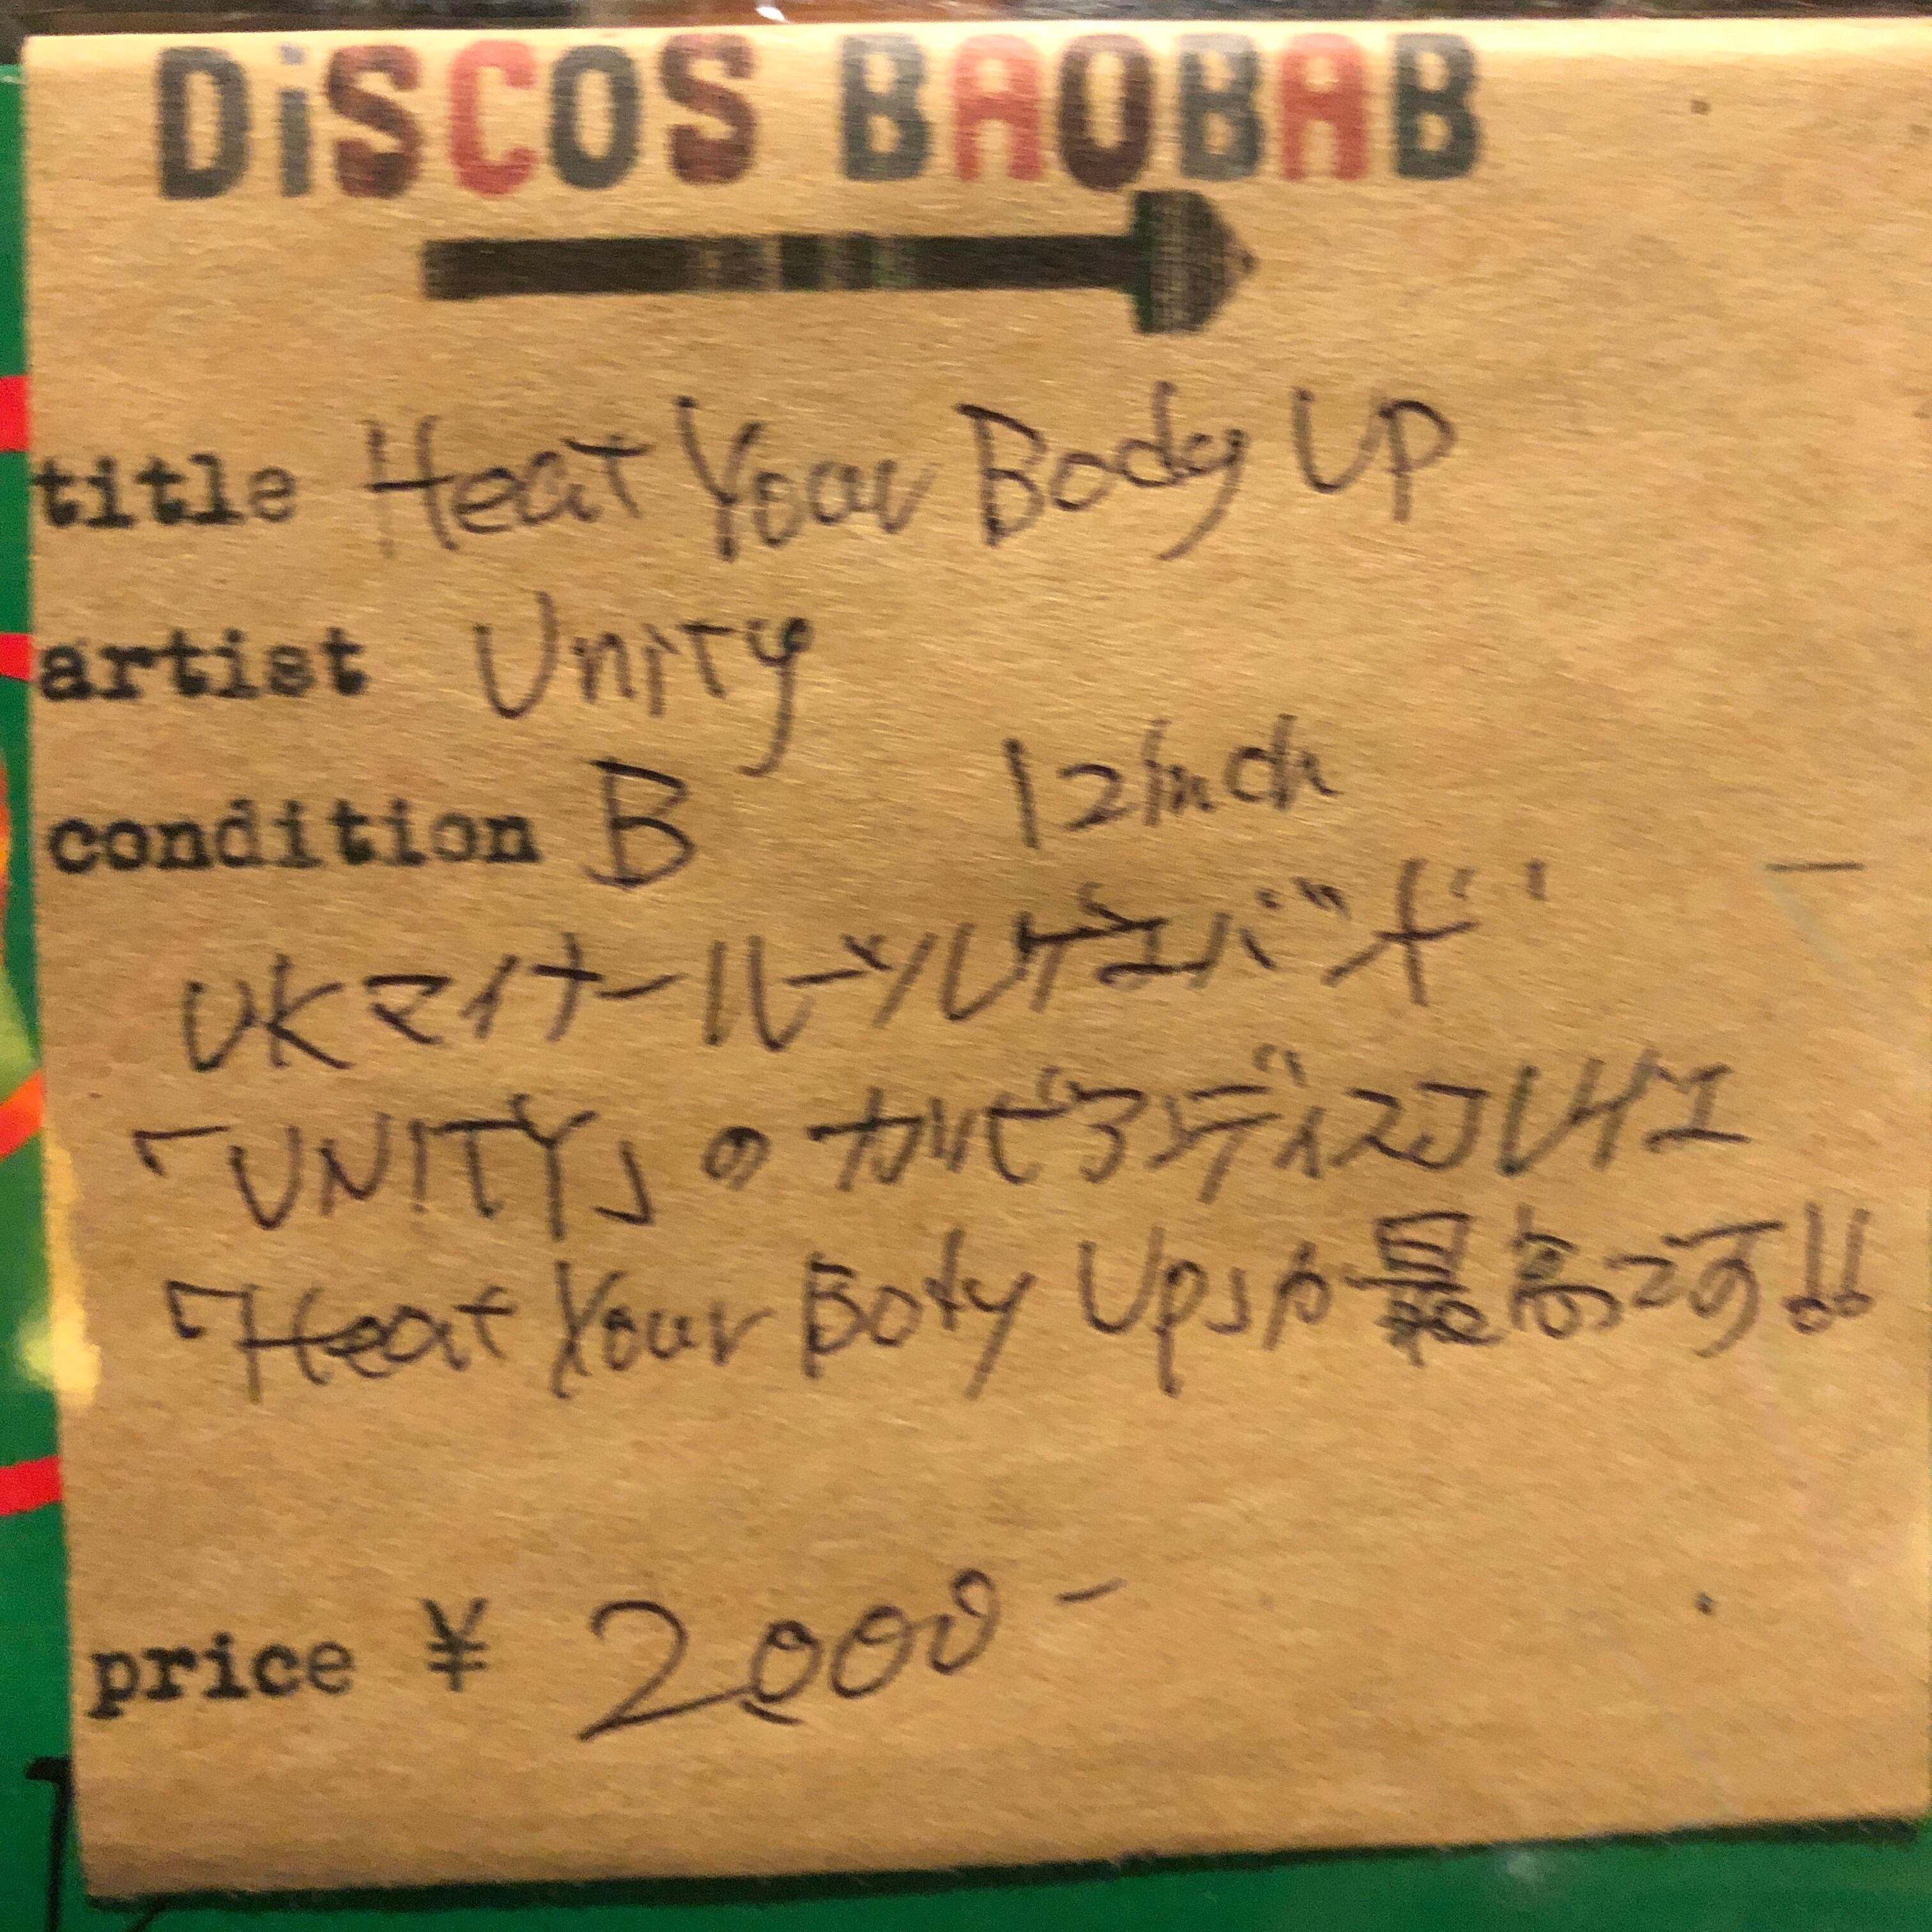 DiSCOS BAOBAB
title Heat Your Body Up
artist Unity
condition B 12inch
UKマイナールーツレゲエバンド
「UNITY」のカリビアンディスコレゲエ
「Heat Your Body Up」が最高です!!
price ¥ 2,000-